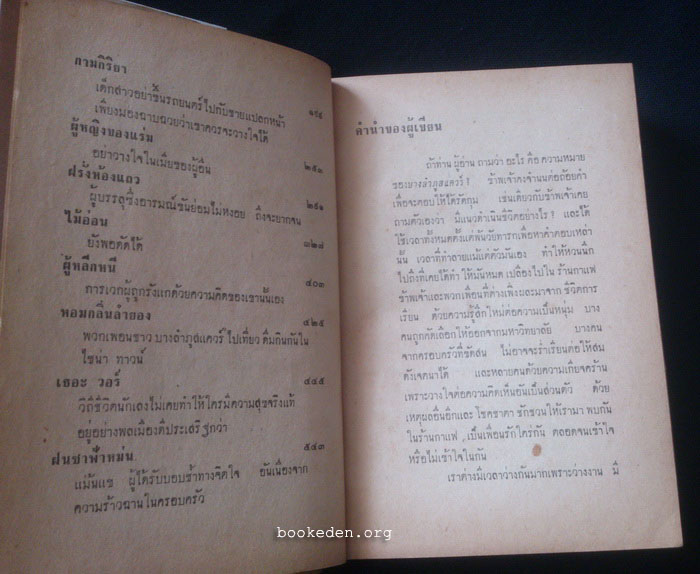 กามกิริยา
เด็กสาวอย่าขึ้นรถยนตร์ไปกับชายแปลกหน้า
เพียงมองฉาบฉวยว่าเขาควรจะวางใจได้ ๑๙๔
ผู้หญิงของแร่ม
อย่าวางใจในเมียของผู้อื่น ๒๕๑
ฝรั่งห้องแถว
ผู้บรรลุซึ่งอารมณ์ขันย่อมไม่หงอย ถึงจะยากจน ๒๙๑
ไม้อ่อน
ยังพอดัดได้ ๓๒๗
ผู้หลีกหนี
การเวกผู้ถูกรังแกด้วยความคิดของเขานั้นเอง ๔๐๓
หอมกลิ่นลำยอง
พวกเพื่อนชาว บางลำภูสแควร์ ไปเที่ยว ดื่มกินกันใน ๔๒๕
ไชน่า ทาวน์
เธอะ วอร์ ๔๔๕
วิถีชีวิตนักเลงไม่เคยทำให้ใครมีความสุขจริงแท้
อยู่อย่างพลเมืองดีประเสริฐกว่า
ฝนซาฟ้าหม่น ๕๔๓
แม้นแข ผู้ได้รับบอบช้ำทางจิตใจ อันเนื่องจาก
ความร้าวฉานในครอบครัว
คำนำของผู้เขียน
ถ้าท่าน ผู้อ่าน ถามว่า อะไร คือ ความหมาย
ของบางลำภูสแควร์ ? ข้าพเจ้าคงจำนนต่อถ้อยคำ
เพื่อจะตอบให้ได้รัดกุม เช่นเดียวกับข้าพเจ้าเคย
ถามตัวเองว่า มีแนวดำเนินชีวิตอย่างไร ? และได้
ใช้เวลาทั้งหมดตั้งแต่พ้นวัยทารกเพื่อหาคำตอบเหล่า
นั้น เวลาที่ทำลายแม้แต่ตัวมันเอง ทำให้หวนนึก
ไปถึงที่เคยได้ทำ ให้มันหมด เปลืองไปใน ร้านกาแฟ
ข้าพเจ้าและพวกเพื่อนที่ต่างเพิ่งผละมาจาก ชีวิตการ
เรียน ด้วยความรู้สึกใหม่ต่อความเป็นหนุ่ม บาง
คนถูกคัดเลือกให้ออกจากมหาวิทยาลัย บางคน
จากครอบครัวที่ขัดสน ไม่อาจจะร่ำเรียนต่อให้สม
ดังเจตนาได้ และหลายคนด้วยความเกียจคร้าน
เพราะวางใจต่อความคิดเห็นอันเป็นส่วนตัว ด้วย
เหตุผลอื่นอีกและ โชคชาตา ชักชวนให้เรามา พบกัน
ในร้านกาแฟ , เป็นเพื่อนรักใคร่กัน ตลอดจนเข้าใจ
หรือไม่เข้าใจในกัน
เราต่างมีเวลาว่างกันมากเพราะว่างงาน มี
bookeden.org